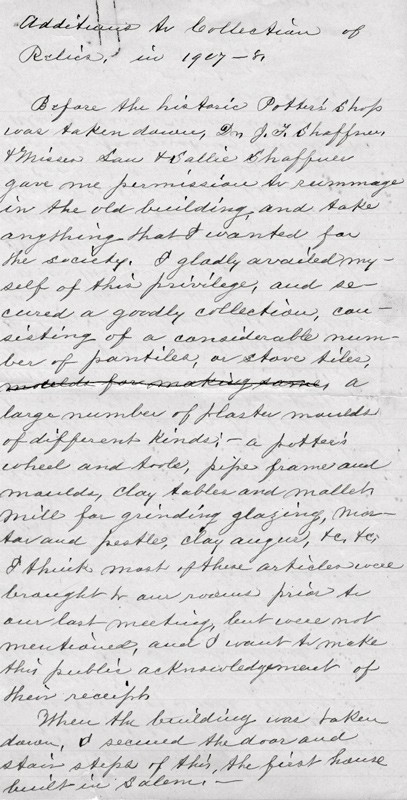 Additions to Collection of
Relics, in 1907–8.
Before the historic Potter's Shop
was taken down, Dr. J. F. Shaffner,
& Misses Lou & Sallie Shaffner
gave me permission to rummage
in the old building, and take
anything that I wanted for
the society. I gladly availed my-
self of this privilege, and se-
cured a goodly collection, con-
sisting of a considerable num-
ber of pantiles, or stove tiles,
moulds for making same, a
large number of plaster moulds
of different kinds; – a potter's
wheel and tools, pipe frame and
moulds, clay tables and mallet,
mill for grinding glazing, mor-
tar and pestle, clay augur, &c, &c.
I think most of these articles were
brought to our rooms prior to
our last meeting, but were not
mentioned, and I want to make
this public acknowledgement of
their receipt.
When the building was taken
down, I secured the door and
stair steps of this, the first house
built in Salem. –